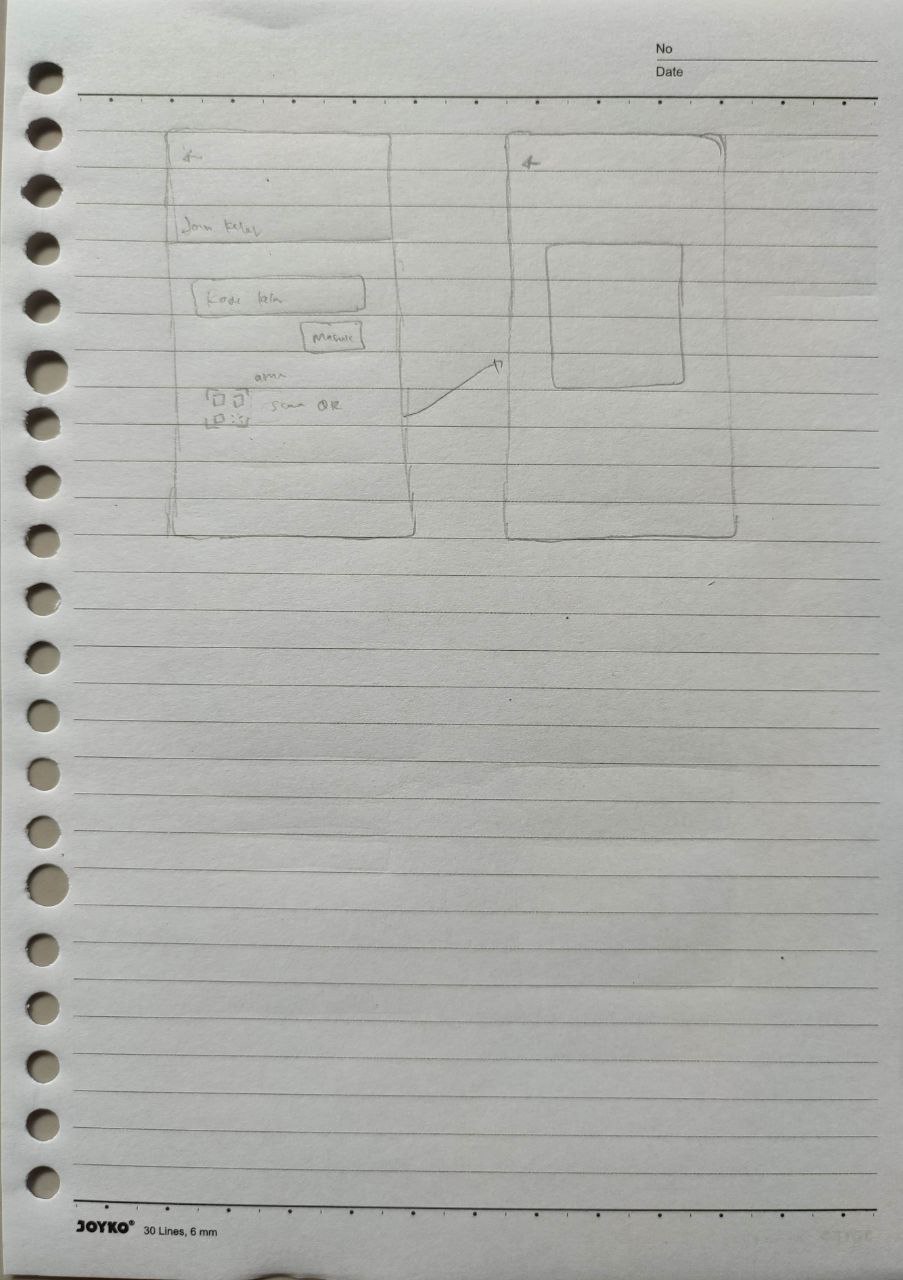 No
Date
Join kelas
Kode
Masuk
scan QR
JOYKO® 30 Lines, 6 mm